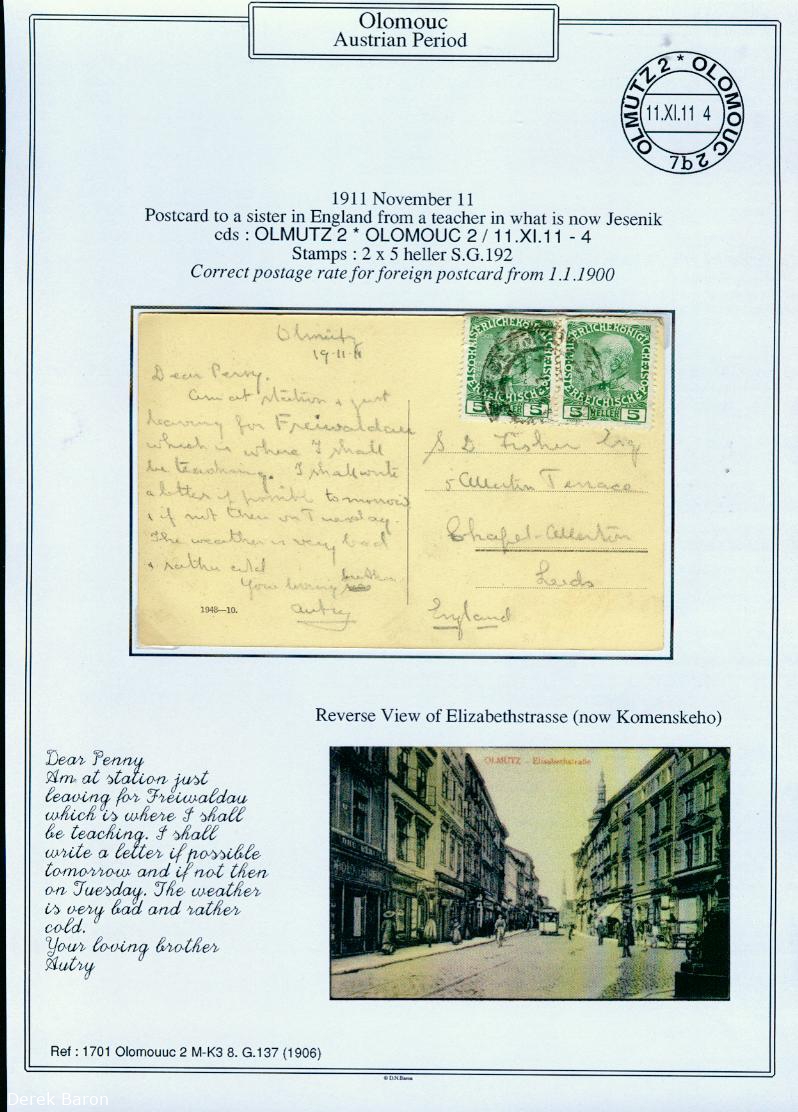 Olomouc
Austrian Period
OLMUTZ 2 * OLOMOUC 2
11.XI.11 4
7b
1911 November 11
Postcard to a sister in England from a teacher in what is now Jesenik
cds : OLMUTZ 2 * OLOMOUC 2 / 11.XI.11 - 4
Stamps : 2 x 5 heller S.G.192
Correct postage rate for foreign postcard from 1.1.1900
Olmütz
19-11-11
Dear Penny.
Am at station & just
leaving for Freiwaldau
which is where I shall
be teaching. I shall write
a letter if possible tomorrow
& if not then on Tuesday.
The weather is very bad
& rather cold
Your loving brother
Autry
1948—10.
5 HELLER 5
5 HELLER 5
S D Fisher Esq
5 Allerton Terrace
Chapel-Allerton
Leeds
England
Reverse View of Elizabethstrasse (now Komenskeho)
Dear Penny
Am at station just
leaving for Freiwaldau
which is where I shall
be teaching. I shall
write a letter if possible
tomorrow and if not then
on Tuesday. The weather
is very bad and rather
cold.
Your loving brother
Autry
OLMÜTZ - Elisabethstraße
Ref : 1701 Olomouuc 2 M-K3 8. G.137 (1906)
© D.N.Baron
Derek Baron